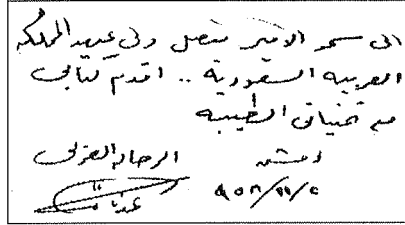 الى سمو الامير فيصل ولي عهد المملكه
العربيه السعودية .. اقدم كتابي
مع تمنياتي الطيبه
دمشق
الرحاله العربي
عدنان